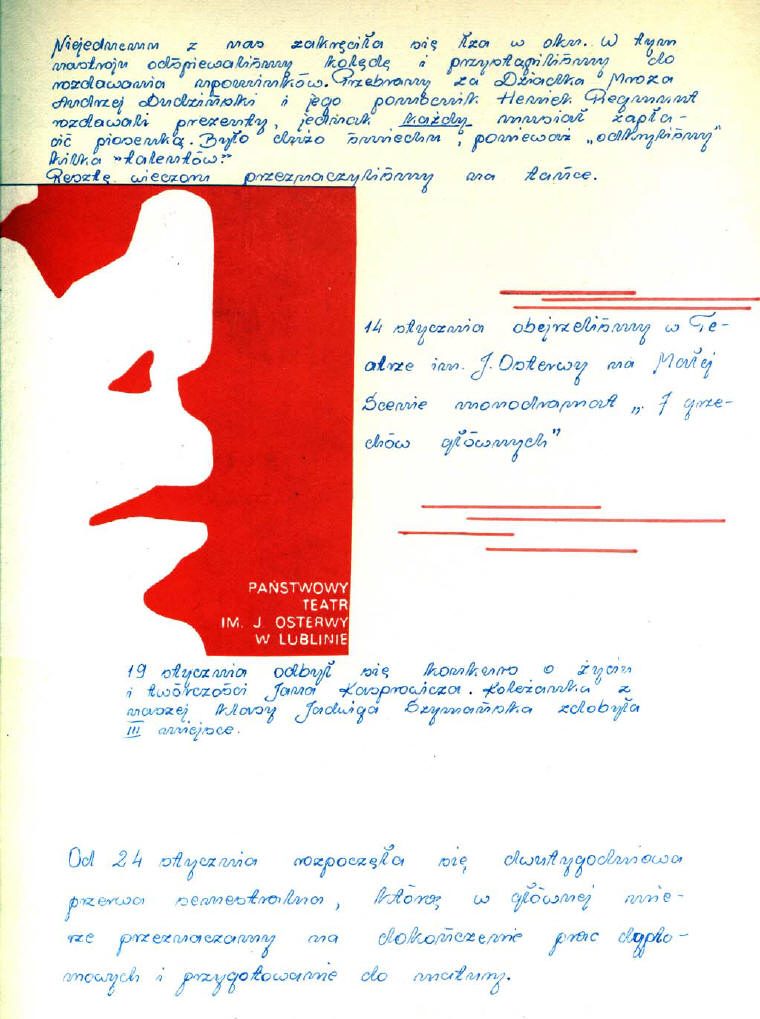 Niejednemu z nas zakręciła się łza w oku. W tym
nastroju odśpiewaliśmy kolędę i przystąpiliśmy do
rozdawania upominków. Przebrany za Dziadka Mroza
Andrzej Dudziński i jego pomocnik Heniek Regmunt
rozdawali prezenty, jednak każdy musiał zapła-
cić piosenką. Było dużo śmiechu, ponieważ „odkryliśmy"
kilka "talentów."
Resztę wieczoru przeznaczyliśmy na tańce.
14 stycznia obejrzeliśmy w Te-
atrze im. J. Osterwy na Małej
Scenie monodramat „ 7 grze-
chów głównych"
PAŃSTWOWY
TEATR
IM. J. OSTERWY
W LUBLINIE
19 stycznia odbył się konkurs o życiu
i twórczości Jana Kasprowicza. Koleżanka z
naszej klasy Jadwiga Szymańska zdobyła
III miejsce.
Od 24 stycznia rozpoczęła się dwutygodniowa
przerwa semestralna, którą w głównej mie-
rze przeznaczamy na dokończenie prac dyplo-
mowych i przygotowanie do matury.